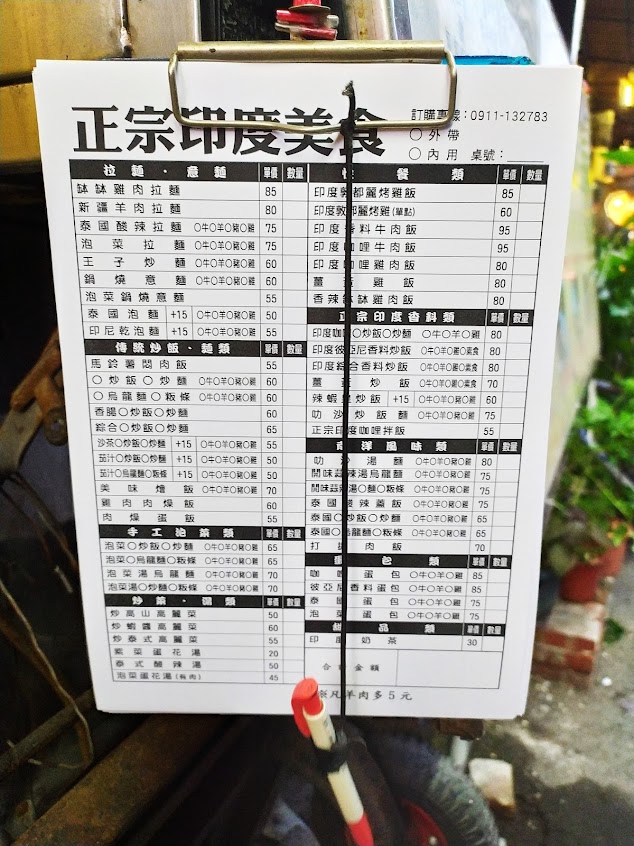 正宗印度美食
訂購專線：0911-132783
○外帶
○內用 桌號：
拉麵．意麵 單價 數量
缽缽雞肉拉麵 85
新疆羊肉拉麵 80
泰國酸辣拉麵 ○牛○羊○豬○雞 75
泡菜拉麵 ○牛○羊○豬○雞 75
王子炒麵 ○牛○羊○豬○雞 60
鍋燒意麵 ○牛○羊○豬○雞 60
泡菜鍋燒意麵 55
泰國泡麵 +15 ○牛○羊○豬○雞 50
印尼乾泡麵 +15 ○牛○羊○豬○雞 55
傳統炒飯．麵類 單價 數量
馬鈴薯悶肉飯 55
○炒飯○炒麵 ○牛○羊○豬○雞 60
○烏龍麵○粄條 ○牛○羊○豬○雞 60
香腸○炒飯○炒麵 60
綜合○炒飯○炒麵 65
沙茶○炒飯○炒麵 +15 ○牛○羊○豬○雞 55
茄汁○炒飯○炒麵 +15 ○牛○羊○豬○雞 50
茄汁○烏龍麵○粄條 +15 ○牛○羊○豬○雞 50
美味燴飯 ○牛○羊○豬○雞 70
雞肉肉燥飯 60
肉燥蛋飯 55
手工泡菜類 單價 數量
泡菜○炒飯○炒麵 ○牛○羊○豬○雞 65
泡菜○烏龍麵○粄條 ○牛○羊○豬○雞 65
泡菜湯烏龍麵 ○牛○羊○豬○雞 70
泡菜湯○炒飯○粄條 ○牛○羊○豬○雞 70
炒菜．湯類 單價 數量
炒高山高麗菜 50
炒蝦醬高麗菜 60
炒泰式高麗菜 55
紫菜蛋花湯 20
泰式酸辣湯 50
泡菜蛋花湯(有肉) 45
餐類 單價 數量
印度敦都麗烤雞飯 85
印度敦都麗烤雞(單點) 60
印度香料牛肉飯 95
印度咖哩牛肉飯 95
印度咖哩雞肉飯 80
薑黃雞飯 80
香辣缽缽雞肉飯 80
正宗印度香料類 單價 數量
印度咖哩○炒飯○炒麵 ○牛○羊○雞 80
印度彼亞尼香料炒飯 ○牛○羊○雞○素食 80
印度綜合香料炒飯 ○牛○羊○雞○素食 80
薑黃炒飯 ○牛○羊○雞○素食 70
辣蝦皇炒飯 +15 ○牛○羊○豬○雞 60
叻沙炒飯麵 ○牛○羊○豬○雞 75
正宗印度咖哩拌飯 55
南洋風味類 單價 數量
叻沙湯麵 ○牛○羊○豬○雞 80
開味蒜辣湯烏龍 ○牛○羊○豬○雞 75
開味蒜辣湯○麵○粄條 ○牛○羊○豬○雞 75
泰國酸辣蓋飯 ○牛○羊○豬○雞 75
泰國○炒飯○炒麵 ○牛○羊○豬○雞 65
泰國○烏龍麵○粄條 ○牛○羊○豬○雞 65
打拋肉飯 70
蛋包類 單價 數量
咖哩蛋包 ○牛○羊○雞 85
彼亞尼香料蛋包 ○牛○羊○雞 85
泰國蛋包 ○牛○羊○雞 75
泡菜蛋包 ○牛○羊○雞 75
甜品類 單價 數量
印度奶茶 30
合計金額
※凡羊肉多5元